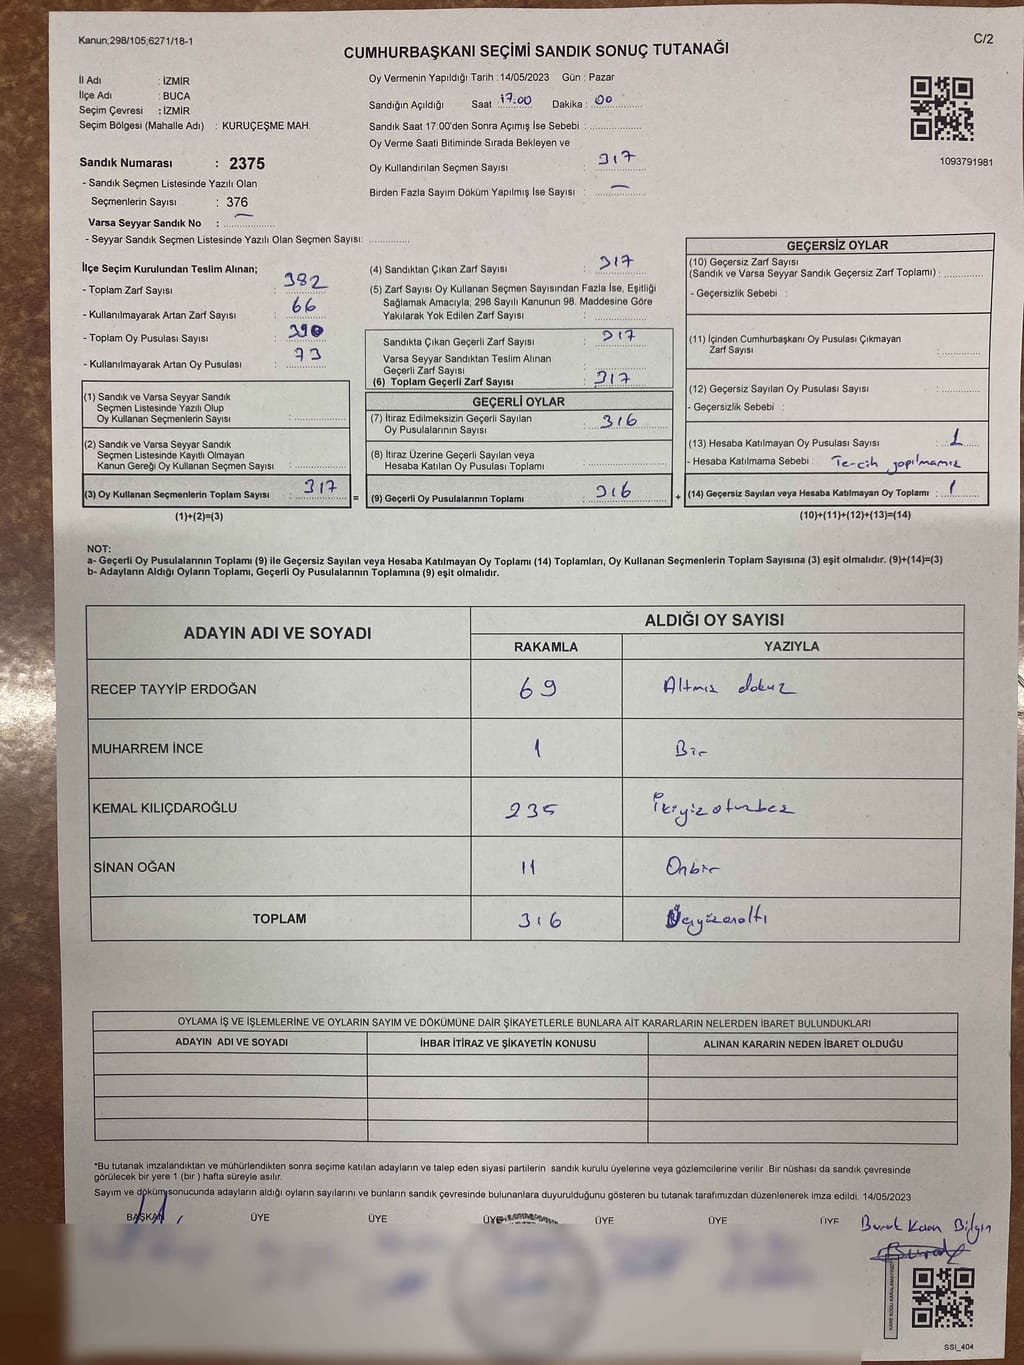 Kanun;298/105;6271/18-1
C/2
CUMHURBAŞKANI SEÇİMİ SANDIK SONUÇ TUTANAĞI
İl Adı : İZMİR
İlçe Adı : BUCA
Seçim Çevresi : İZMİR
Seçim Bölgesi (Mahalle Adı) : KURUÇEŞME MAH.
Sandık Numarası : 2375
- Sandık Seçmen Listesinde Yazılı Olan
Seçmenlerin Sayısı : 376
Varsa Seyyar Sandık No : —
- Seyyar Sandık Seçmen Listesinde Yazılı Olan Seçmen Sayısı:
Oy Vermenin Yapıldığı Tarih : 14/05/2023 Gün : Pazar
Sandığın Açıldığı Saat 17:00 Dakika : 00
Sandık Saat 17:00'den Sonra Açımış İse Sebebi :
Oy Verme Saati Bitiminde Sırada Bekleyen ve
Oy Kullandırılan Seçmen Sayısı : 317
Birden Fazla Sayım Döküm Yapılmış İse Sayısı : —
1093791981
İlçe Seçim Kurulundan Teslim Alınan;
- Toplam Zarf Sayısı : 382
- Kullanılmayarak Artan Zarf Sayısı : 66
- Toplam Oy Pusulası Sayısı : 390
- Kullanılmayarak Artan Oy Pusulası : 73
(1) Sandık ve Varsa Seyyar Sandık
Seçmen Listesinde Yazılı Olup
Oy Kullanan Seçmenlerin Sayısı :
(2) Sandık ve Varsa Seyyar Sandık
Seçmen Listesinde Kayıtlı Olmayan
Kanun Gereği Oy Kullanan Seçmen Sayısı :
(3) Oy Kullanan Seçmenlerin Toplam Sayısı : 317
(1)+(2)=(3)
=
(4) Sandıktan Çıkan Zarf Sayısı : 317
(5) Zarf Sayısı Oy Kullanan Seçmen Sayısından Fazla İse, Eşitliği
Sağlamak Amacıyla; 298 Sayılı Kanunun 98. Maddesine Göre
Yakılarak Yok Edilen Zarf Sayısı :
Sandıkta Çıkan Geçerli Zarf Sayısı : 317
Varsa Seyyar Sandıktan Teslim Alınan
Geçerli Zarf Sayısı :
(6) Toplam Geçerli Zarf Sayısı : 317
GEÇERLİ OYLAR
(7) İtiraz Edilmeksizin Geçerli Sayılan
Oy Pusulalarının Sayısı : 316
(8) İtiraz Üzerine Geçerli Sayılan veya
Hesaba Katılan Oy Pusulası Toplamı :
(9) Geçerli Oy Pusulalarının Toplamı : 316
+
GEÇERSİZ OYLAR
(10) Geçersiz Zarf Sayısı
(Sandık ve Varsa Seyyar Sandık Geçersiz Zarf Toplamı) :
- Geçersizlik Sebebi :
(11) İçinden Cumhurbaşkanı Oy Pusulası Çıkmayan
Zarf Sayısı :
(12) Geçersiz Sayılan Oy Pusulası Sayısı :
- Geçersizlik Sebebi :
(13) Hesaba Katılmayan Oy Pusulası Sayısı : 1
- Hesaba Katılmama Sebebi : Tercih yapılmamış
(14) Geçersiz Sayılan veya Hesaba Katılmayan Oy Toplamı : 1
(10)+(11)+(12)+(13)=(14)
NOT:
a- Geçerli Oy Pusulalarının Toplamı (9) ile Geçersiz Sayılan veya Hesaba Katılmayan Oy Toplamı (14) Toplamları, Oy Kullanan Seçmenlerin Toplam Sayısına (3) eşit olmalıdır. (9)+(14)=(3)
b- Adayların Aldığı Oyların Toplamı, Geçerli Oy Pusulalarının Toplamına (9) eşit olmalıdır.
ADAYIN ADI VE SOYADI
ALDIĞI OY SAYISI
RAKAMLA YAZIYLA
RECEP TAYYİP ERDOĞAN 69 Altmış dokuz
MUHARREM İNCE 1 Bir
KEMAL KILIÇDAROĞLU 235 İkiyüzotuzbeş
SİNAN OĞAN 11 Onbir
TOPLAM 316 Üçyüzonaltı
OYLAMA İŞ VE İŞLEMLERİNE VE OYLARIN SAYIM VE DÖKÜMÜNE DAİR ŞİKAYETLERLE BUNLARA AİT KARARLARIN NELERDEN İBARET BULUNDUKLARI
ADAYIN ADI VE SOYADI İHBAR İTİRAZ VE ŞİKAYETİN KONUSU ALINAN KARARIN NEDEN İBARET OLDUĞU
*Bu tutanak imzalandıktan ve mühürlendikten sonra seçime katılan adayların ve talep eden siyasi partilerin sandık kurulu üyelerine veya gözlemcilerine verilir .Bir nüshası da sandık çevresinde
görülecek bir yere 1 (bir ) hafta süreyle asılır.
Sayım ve döküm sonucunda adayların aldığı oyların sayılarını ve bunların sandık çevresinde bulunanlara duyurulduğunu gösteren bu tutanak tarafımızdan düzenlenerek imza edildi. 14/05/2023
BAŞKAN ÜYE ÜYE ÜYE ÜYE ÜYE ÜYE
Burak Kaan Bilgin
KARE KODU KARALAMAYINIZ
SSI_404